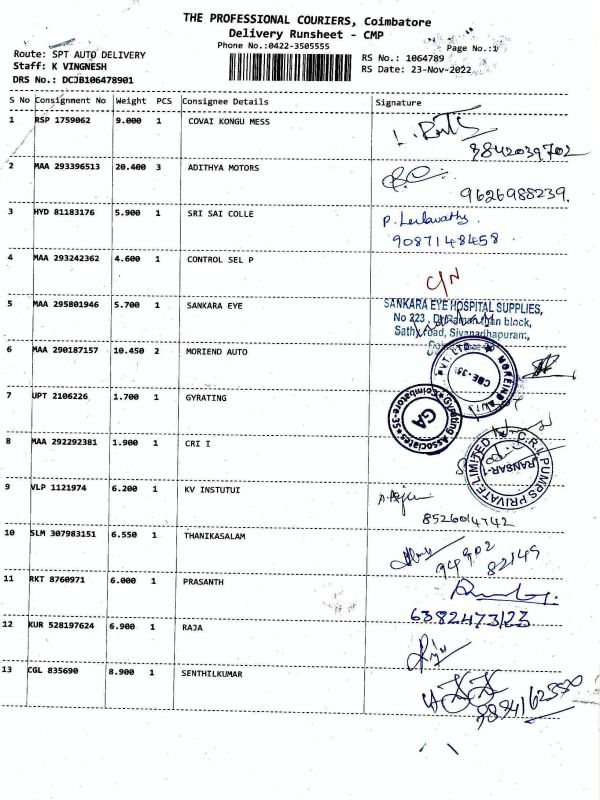 THE PROFESSIONAL COURIERS, Coimbatore
Delivery Runsheet - CMP
Phone No.:0422-3505555
Page No.:1
Route: SPT AUTO DELIVERY
Staff: K VINGNESH
DRS No.: DCJB106478901
RS No.: 1064789
RS Date: 23-Nov-2022
S No Consignment No Weight PCS Consignee Details Signature
1 RSP 1759062 9.000 1 COVAI KONGU MESS
9842039702
2 MAA 293396513 20.400 3 ADITHYA MOTORS
9626988239.
3 HYD 81183176 5.900 1 SRI SAI COLLE
P. Leelavathy.
9087148458
4 MAA 293242362 4.600 1 CONTROL SEL P
C/N
5 MAA 295801946 5.700 1 SANKARA EYE
SANKARA EYE HOSPITAL SUPPLIES,
No 223, block,
Sathy road, Sivanadhapuram,
6 MAA 290187157 10.450 2 MORIEND AUTO
PVT. LTD. ★ MOREIND AUTO
CBE-35
7 UPT 2106226 1.700 1 GYRATING
Gyrating Associates ★ Coimbatore-35 ★
GA
8 MAA 292292381 1.900 1 CRI I
C.R.I. PUMPS PRIVATE LIMITED
9 VLP 1121974 6.200 1 KV INSTUTUI
8526014742
10 SLM 307983151 6.550 1 THANIKASALAM
94902 82149
11 RKT 8760971 6.000 1 PRASANTH
6382473123
12 KUR 528197624 6.900 1 RAJA
13 CGL 835690 8.900 1 SENTHILKUMAR